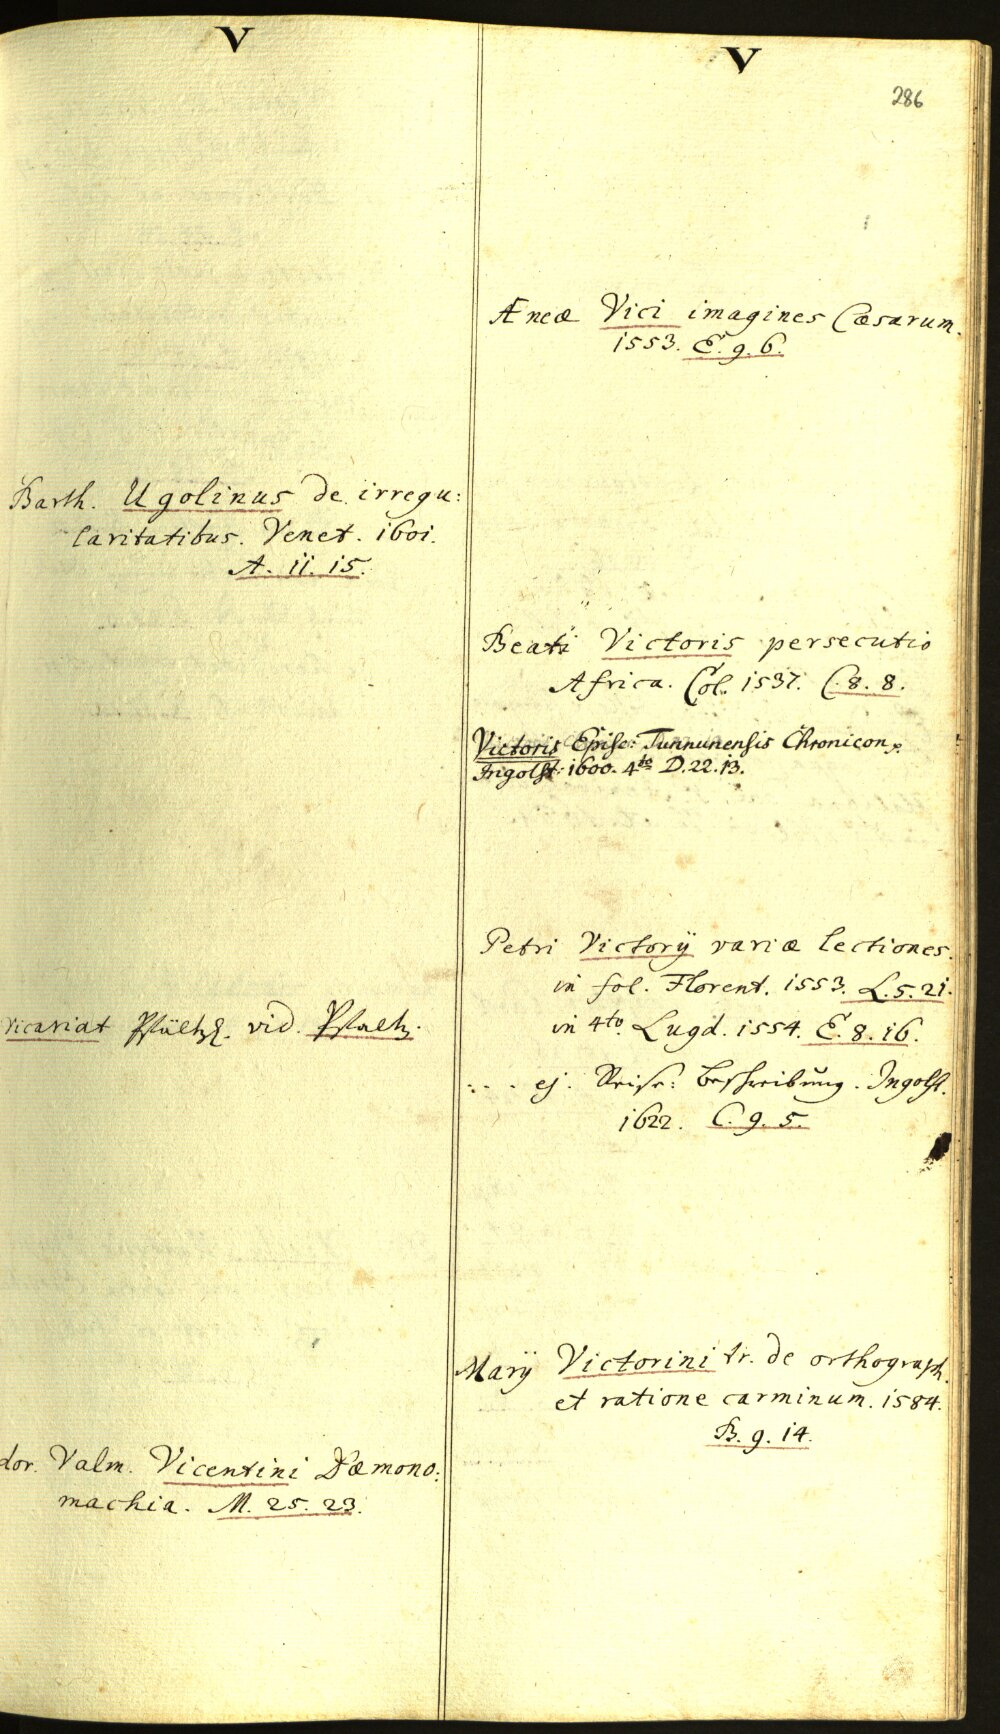 V
Barth. Ugolinus de irregu:
laritatibus. Venet. 1601.
A. 11. 15.
vicariat Pfältz. vid. Pfaltz.
dor. Valm. Vicentini Dæmono:
machia. M. 25. 23.
V
286
Æneæ Vici imagines Cæsarum.
1553. E. 9. 6.
Beati Victoris persecutio
Africa. Col. 1537. C. 8. 8.
Victoris Episc: Tunnunensis Chronicon
Ingolst: 1600. 4to D. 22. 13.
Petri Victorij variæ lectiones.
in fol. Florent. 1553. L. 5. 21.
in 4to. Lugd. 1554. E. 8. 16.
ej. Reise: beschreibung. Ingolst.
1622. C. 9. 5.
Marij Victorini tr. de orthograph.
et ratione carminum. 1584.
B. 9. 14.